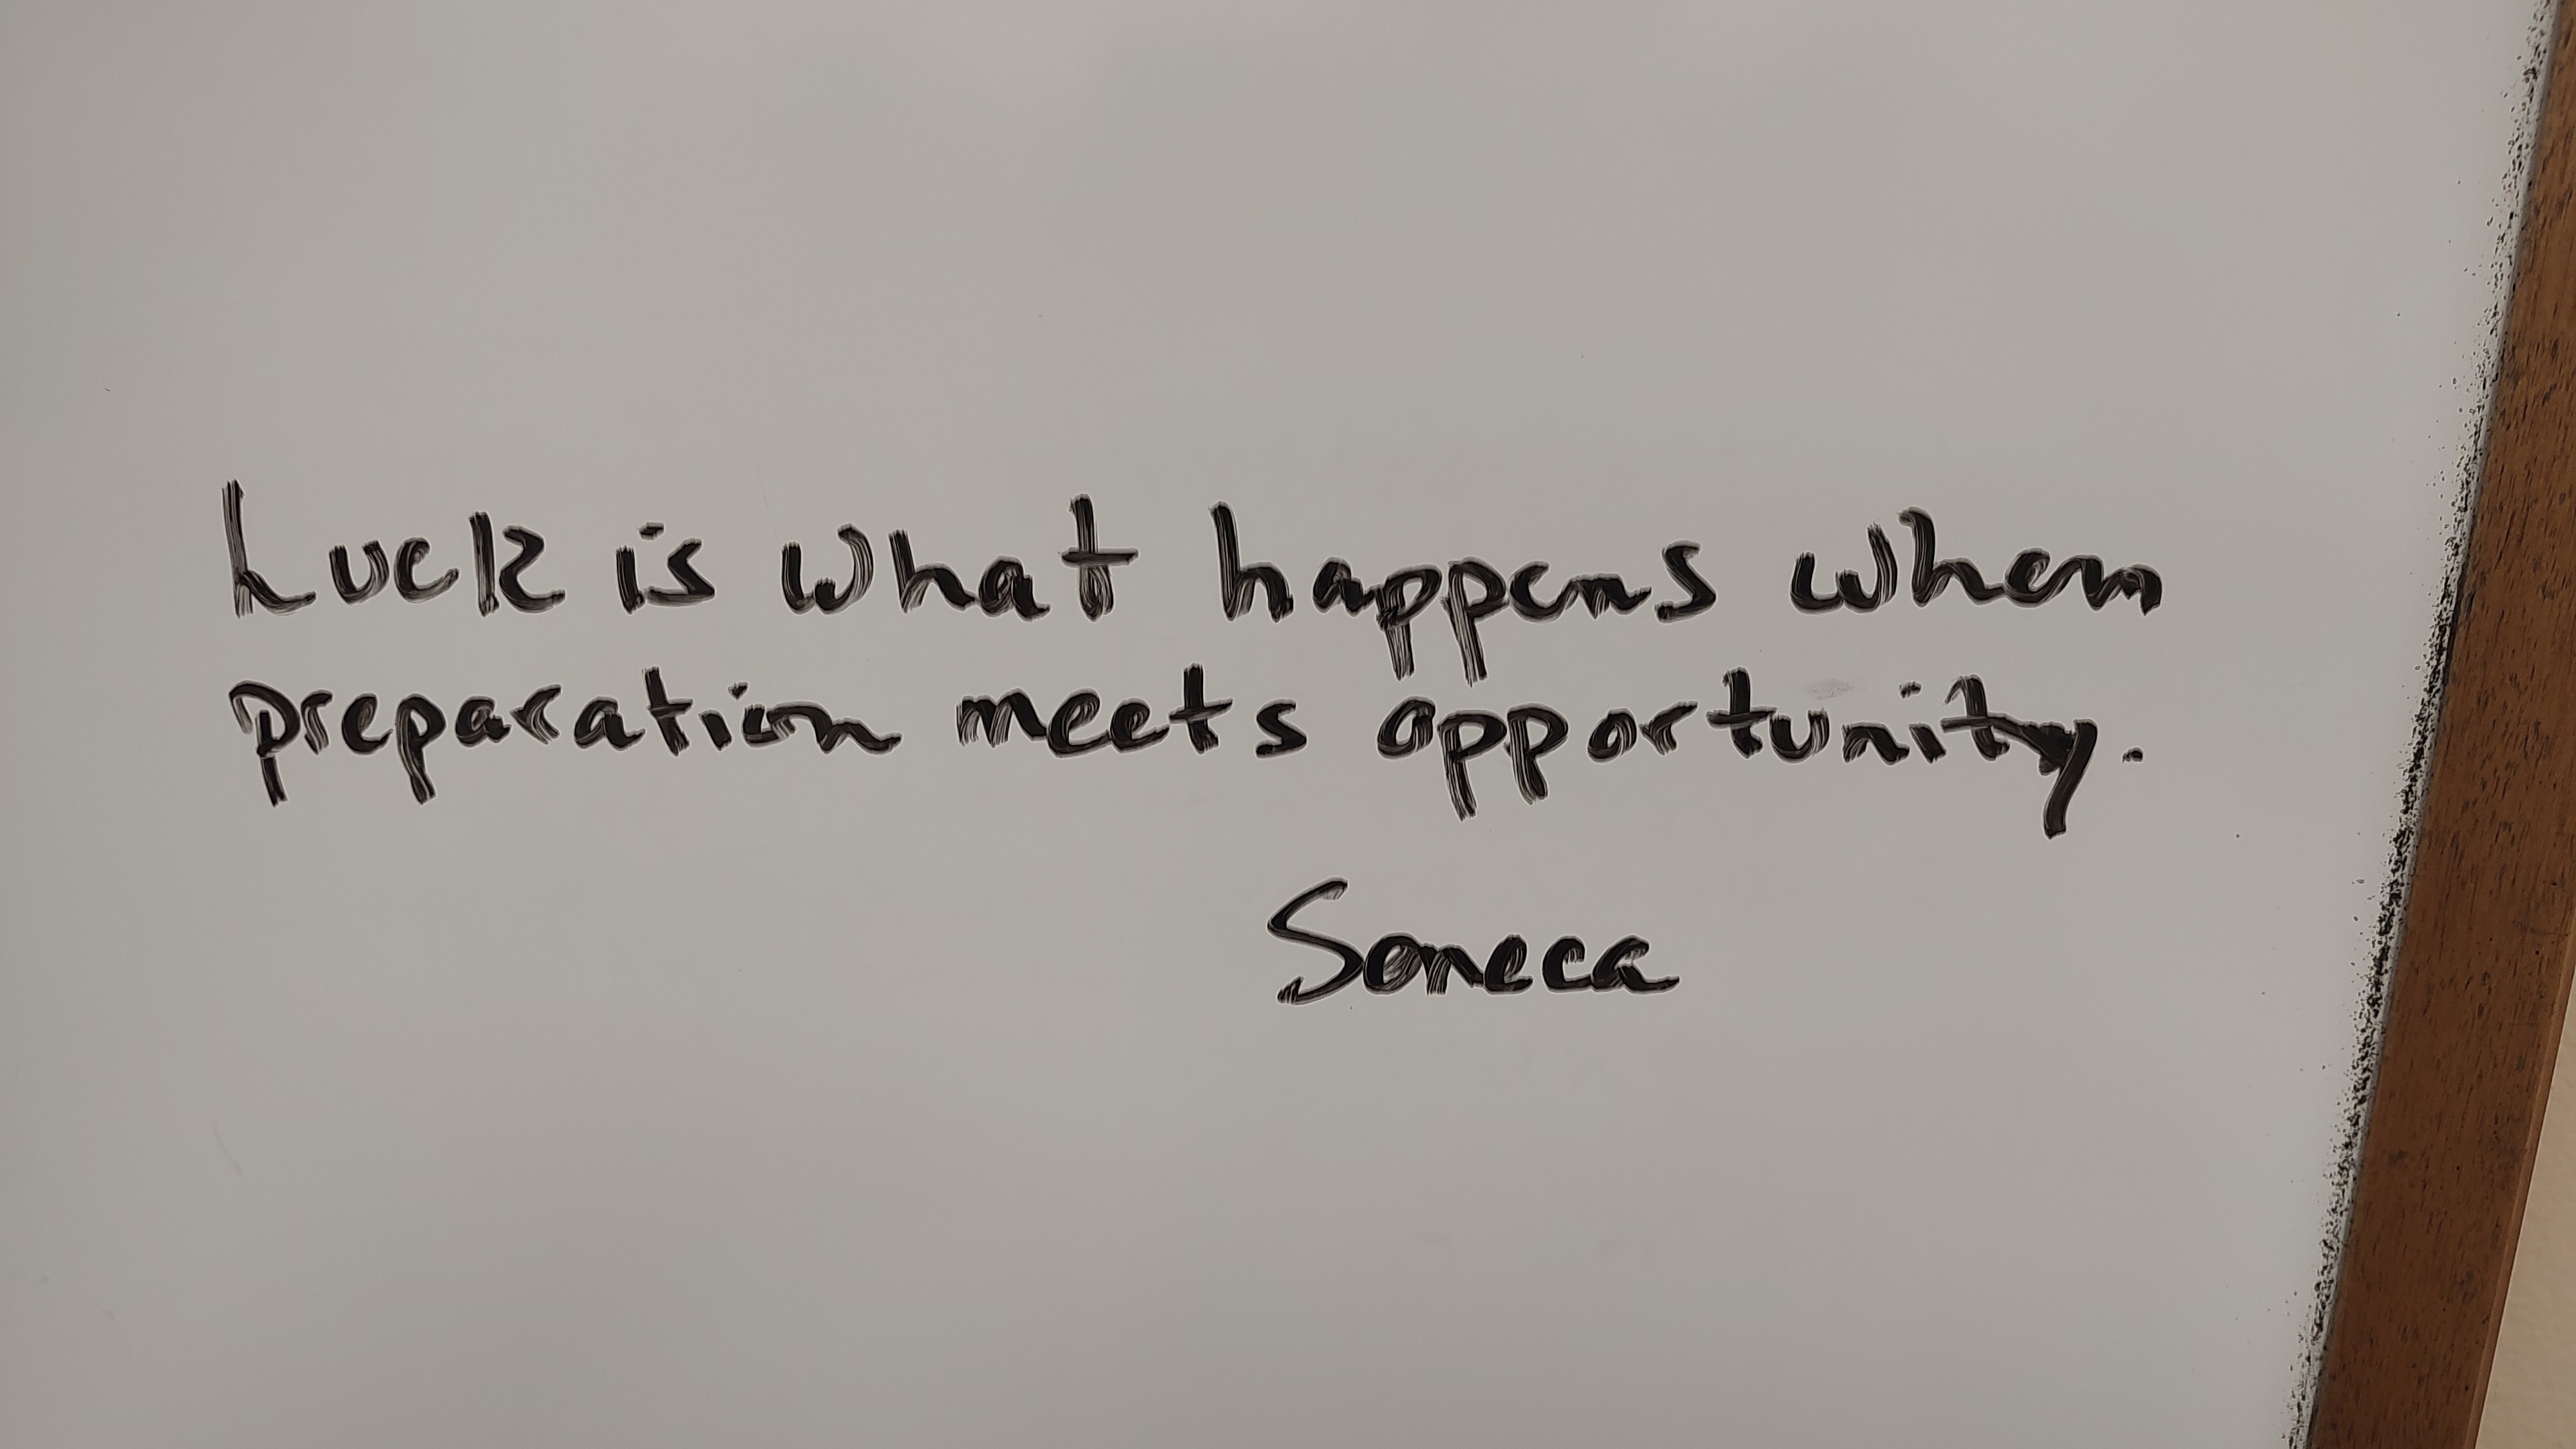 Luck is what happens when
preparation meets opportunity.
Seneca